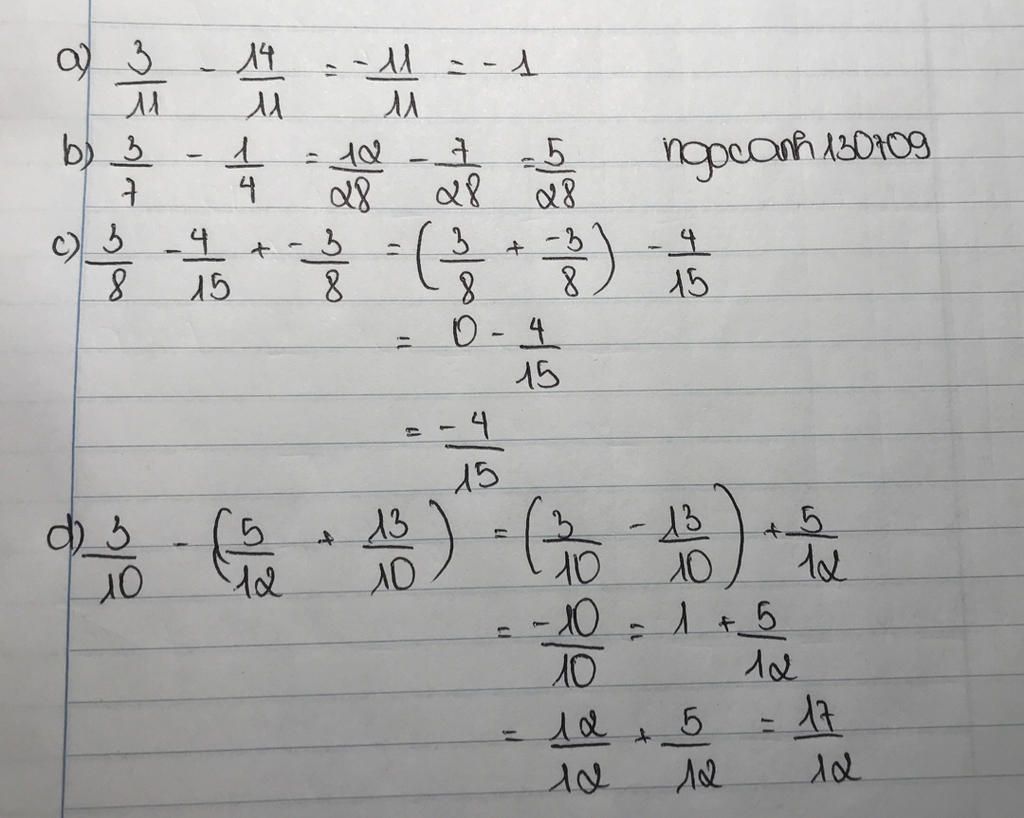 a) 3/11 - 14/11 = -11/11 = -1
b) 3/7 - 1/4 = 12/28 - 7/28 = 5/28
ngocanh130709
c) 3/8 - 4/15 + -3/8 = (3/8 + -3/8) - 4/15
= 0 - 4/15
= -4/15
d) 3/10 - (5/12 + 13/10) = (3/10 - 13/10) + 5/12
= -10/10 = 1 + 5/12
= 12/12 + 5/12 = 17/12